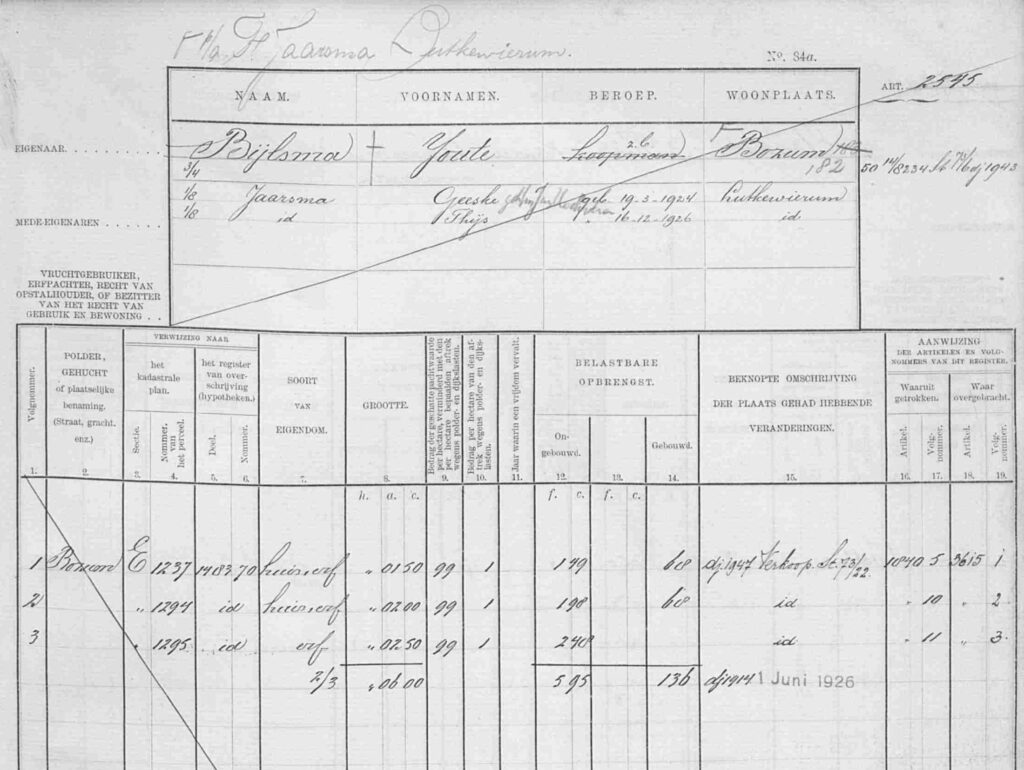 p/a Jaarsma Lutkewierum.
No. 84a.
NAAM. VOORNAMEN. BEROEP. WOONPLAATS.
ART. 2545
EIGENAAR
Bijlsma Youte Koopman Bozum 182
3/4
1/8 Jaarsma Geeske geb 19-3-1924 Lutkewierum
1/8 id Thijs " 16-12-1926 id
MEDE-EIGENAREN
VRUCHTGEBRUIKER,
ERFPACHTER, RECHT VAN
OPSTALHOUDER, OF BEZITTER
VAN HET RECHT VAN
GEBRUIK EN BEWONING
Volgnommer.
POLDER,
GEHUCHT
of plaatselijke
benaming.
(Straat, gracht.
enz.)
VERWIJZING NAAR
het
kadastrale
plan.
Sectie.
Nommer.
van
het perceel.
het register
van over-
schrijving
(hypotheken.)
Deel.
Nommer.
SOORT
VAN
EIGENDOM.
GROOTTE.
Bedrag der geschatte pachtwaarde
per hectare, verminderd met den
per hectare bepaalden aftrek
wegens polder- en dijkslasten.
Bedrag per hectare van den af-
trek wegens polder- en dijks-
lasten.
Jaar waarin een vrijdom vervalt.
BELASTBARE
OPBRENGST.
On-
gebouwd.
Gebouwd.
BEKNOPTE OMSCHRIJVING
DER PLAATS GEHAD HEBBENDE
VERANDERINGEN.
AANWIJZING
DER ARTIKELEN EN VOLG-
NOMMERS VAN DIT REGISTER.
Waaruit
getrokken.
Waar
overgebracht.
Artikel.
Volg-
nommer.
Artikel.
Volg-
nommer.
1. 2. 3. 4. 5. 6. 7. 8. 9. 10. 11. 12. 13. 14. 15. 16. 17. 18. 19.
h. a. c. f. c. f. c.
1 Bozum E 1237 1483 70 huis, erf " 01 50 99 1 1 49 68 dj 1947 Verkoop St. 73/22 1840 5 3615 1
2 " 1294 id huis, erf " 02 00 99 1 1 98 68 id " 10 " 2
3 " 1295 id erf " 02 50 99 1 2 48 id " 11 " 3
2/3 " 06 00 5.95 136 dj 1914 1 Juni 1926